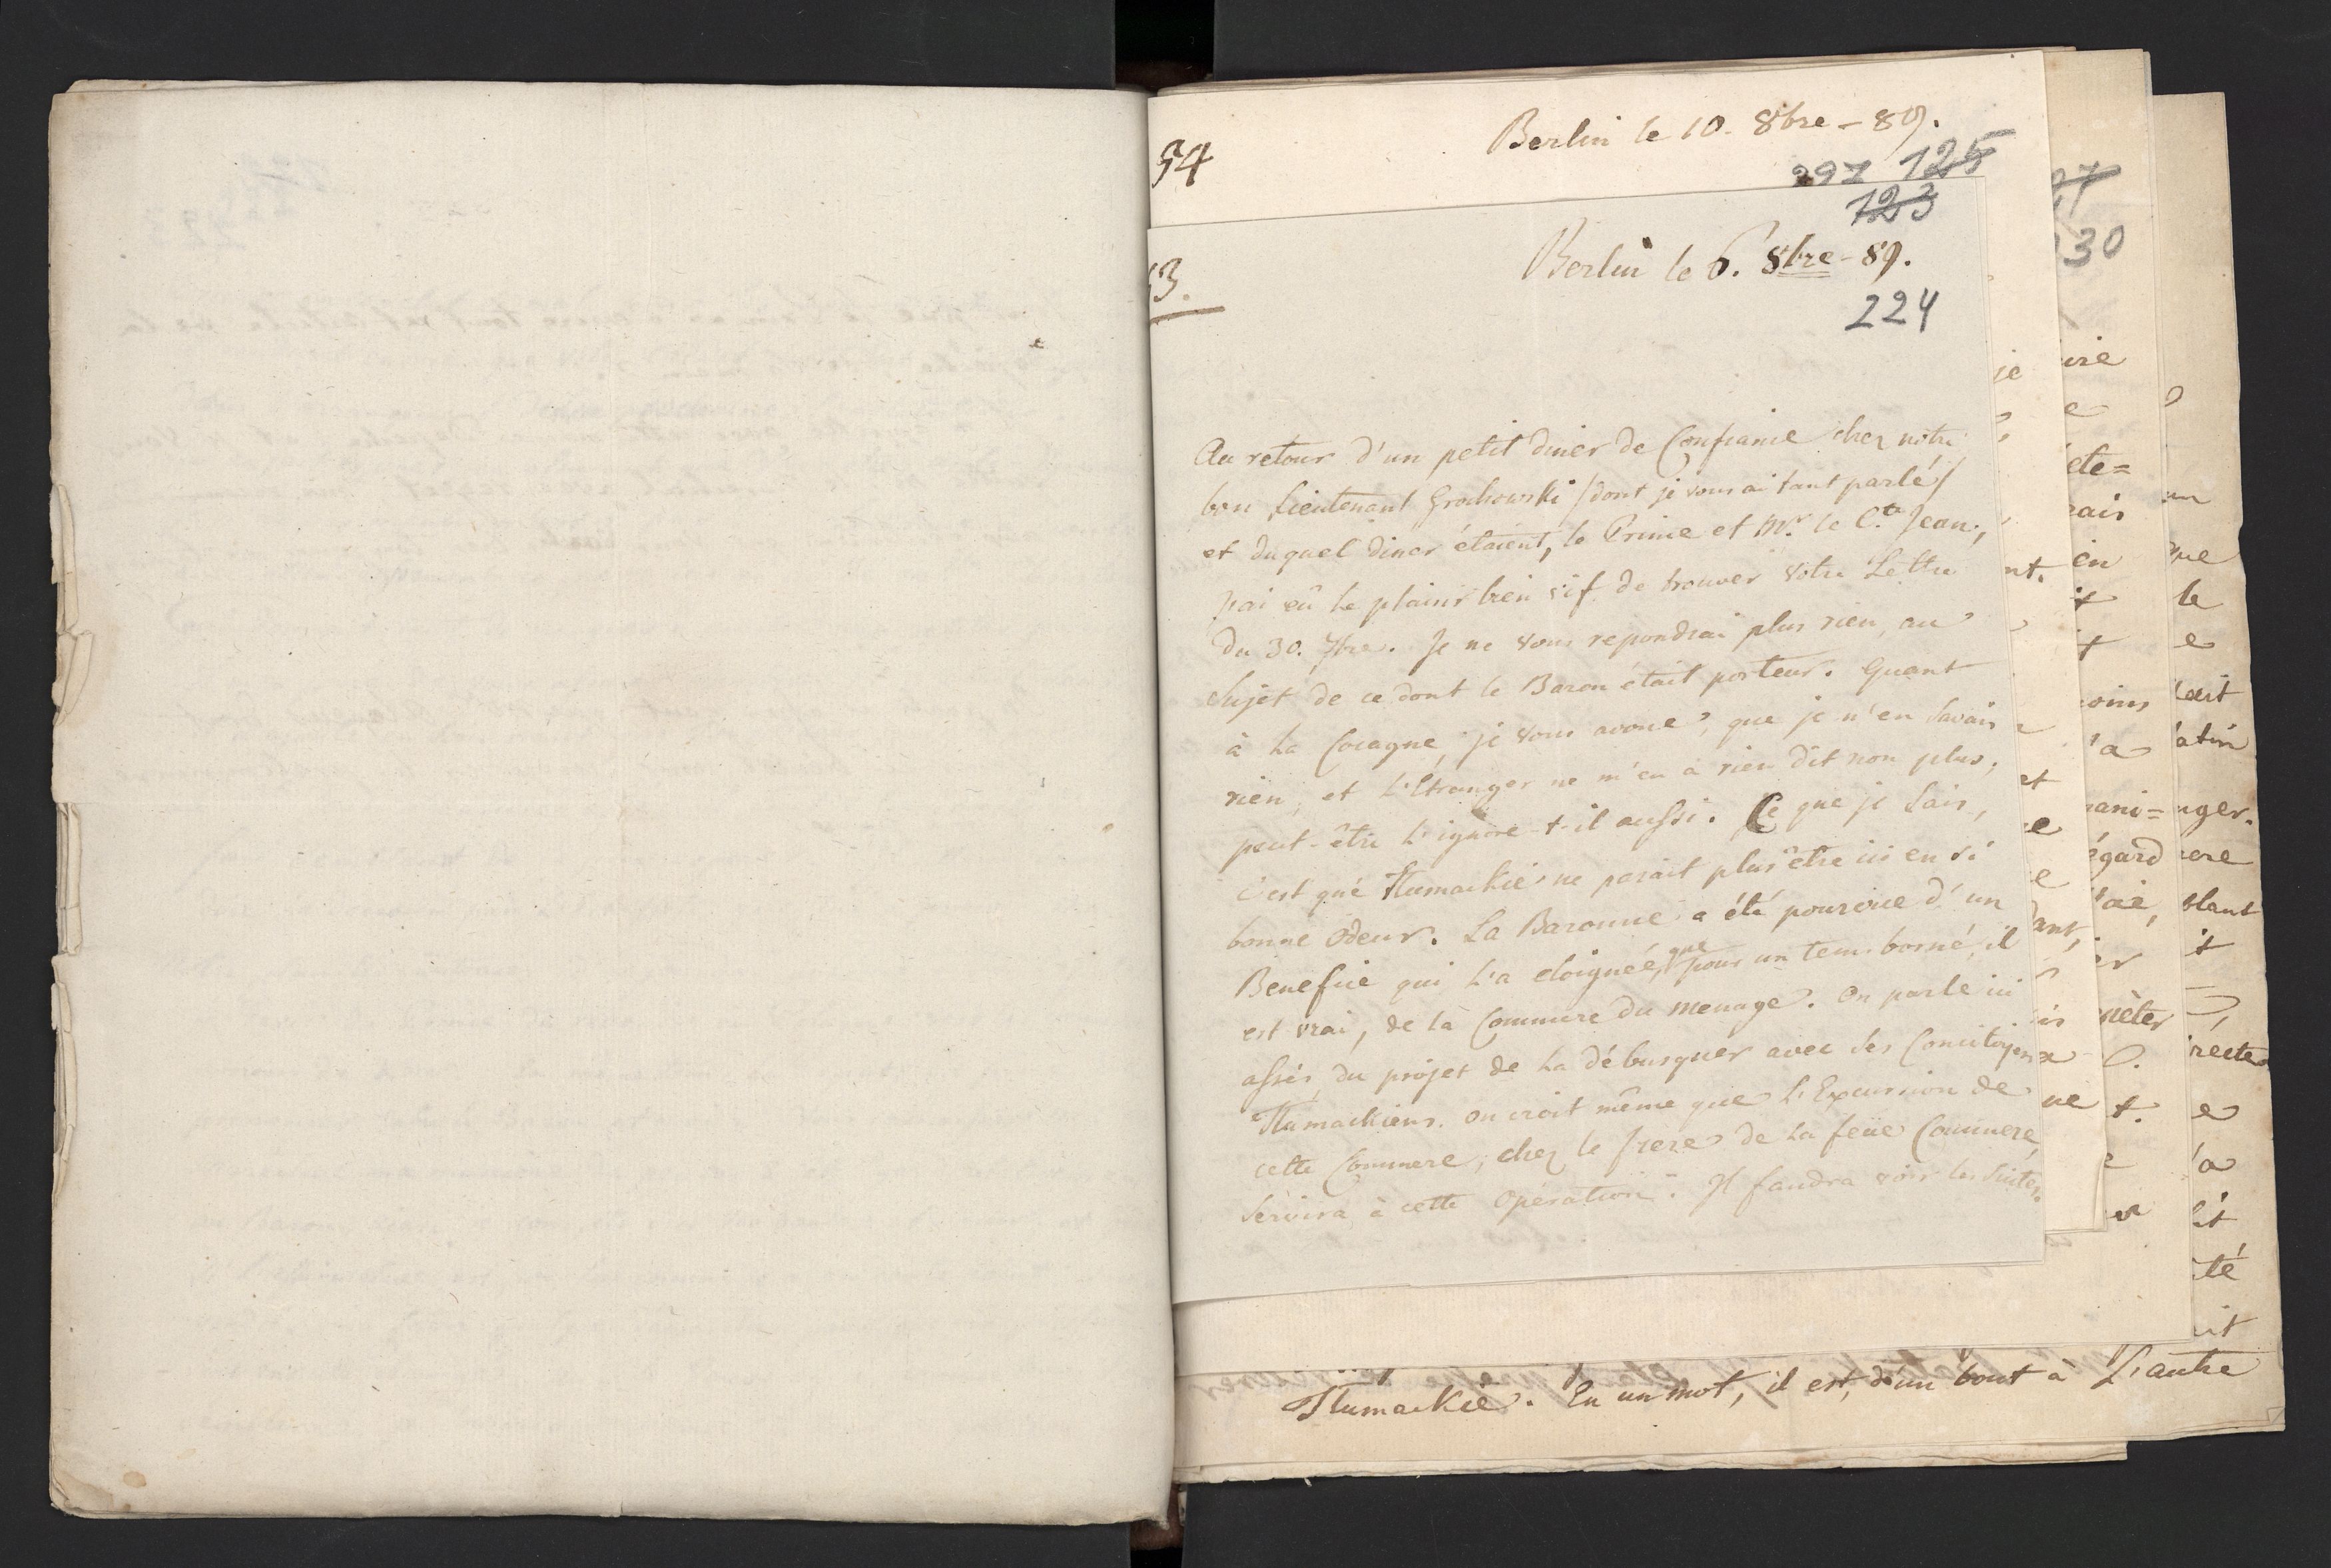 54
Berlin le 10. 8bre - 89.
297 125
123
3.
Berlin le 6. 8bre - 89.
224
Au retour d'un petit diner de Confiance chez notre
bon Lieutenant Grochowski /dont je vous ai tant parlé/
et duquel diner étaient, le Prince et Mr. le Cte Jean,
j'ai eû le plaisir bien vif de trouver votre Lettre
du 30. 7bre. Je ne vous repondrai plus rien, au
Sujet de ce dont le Baron était porteur. Quant
à la Cocagne, je vous avoue, que je n'en Savais
rien, et L'Etranger ne m'en a rien dit non plus,
peut-être L'ignore-t-il aussi. Ce que je Sais,
c'est que Tlumackie ne parait plus être ici en Si
bonne Odeur. La Baronne a été pourvue d'un
Benefice qui L'a eloignée, que pour un tems borné, il
est vrai, de la Commere du menage. On parle ici
assés du projet de La débusquer avec Ses Concitoyens
Tlumackiens. On croit même que L'Excursion de
cette Commere, chez le frere de La feüe Commere,
Servira à cette Opération. Il faudra voir les Suites.
Tlumackie. En un mot, il est, d'un bout à L'autre
27
230
je
nt.
et
e
ant,
ue
ete=
rais
en
oins
'a
mani=
égard
C.
t.
que
le
e
tait
atin
nger.
blant
it
recte
e
'a
té